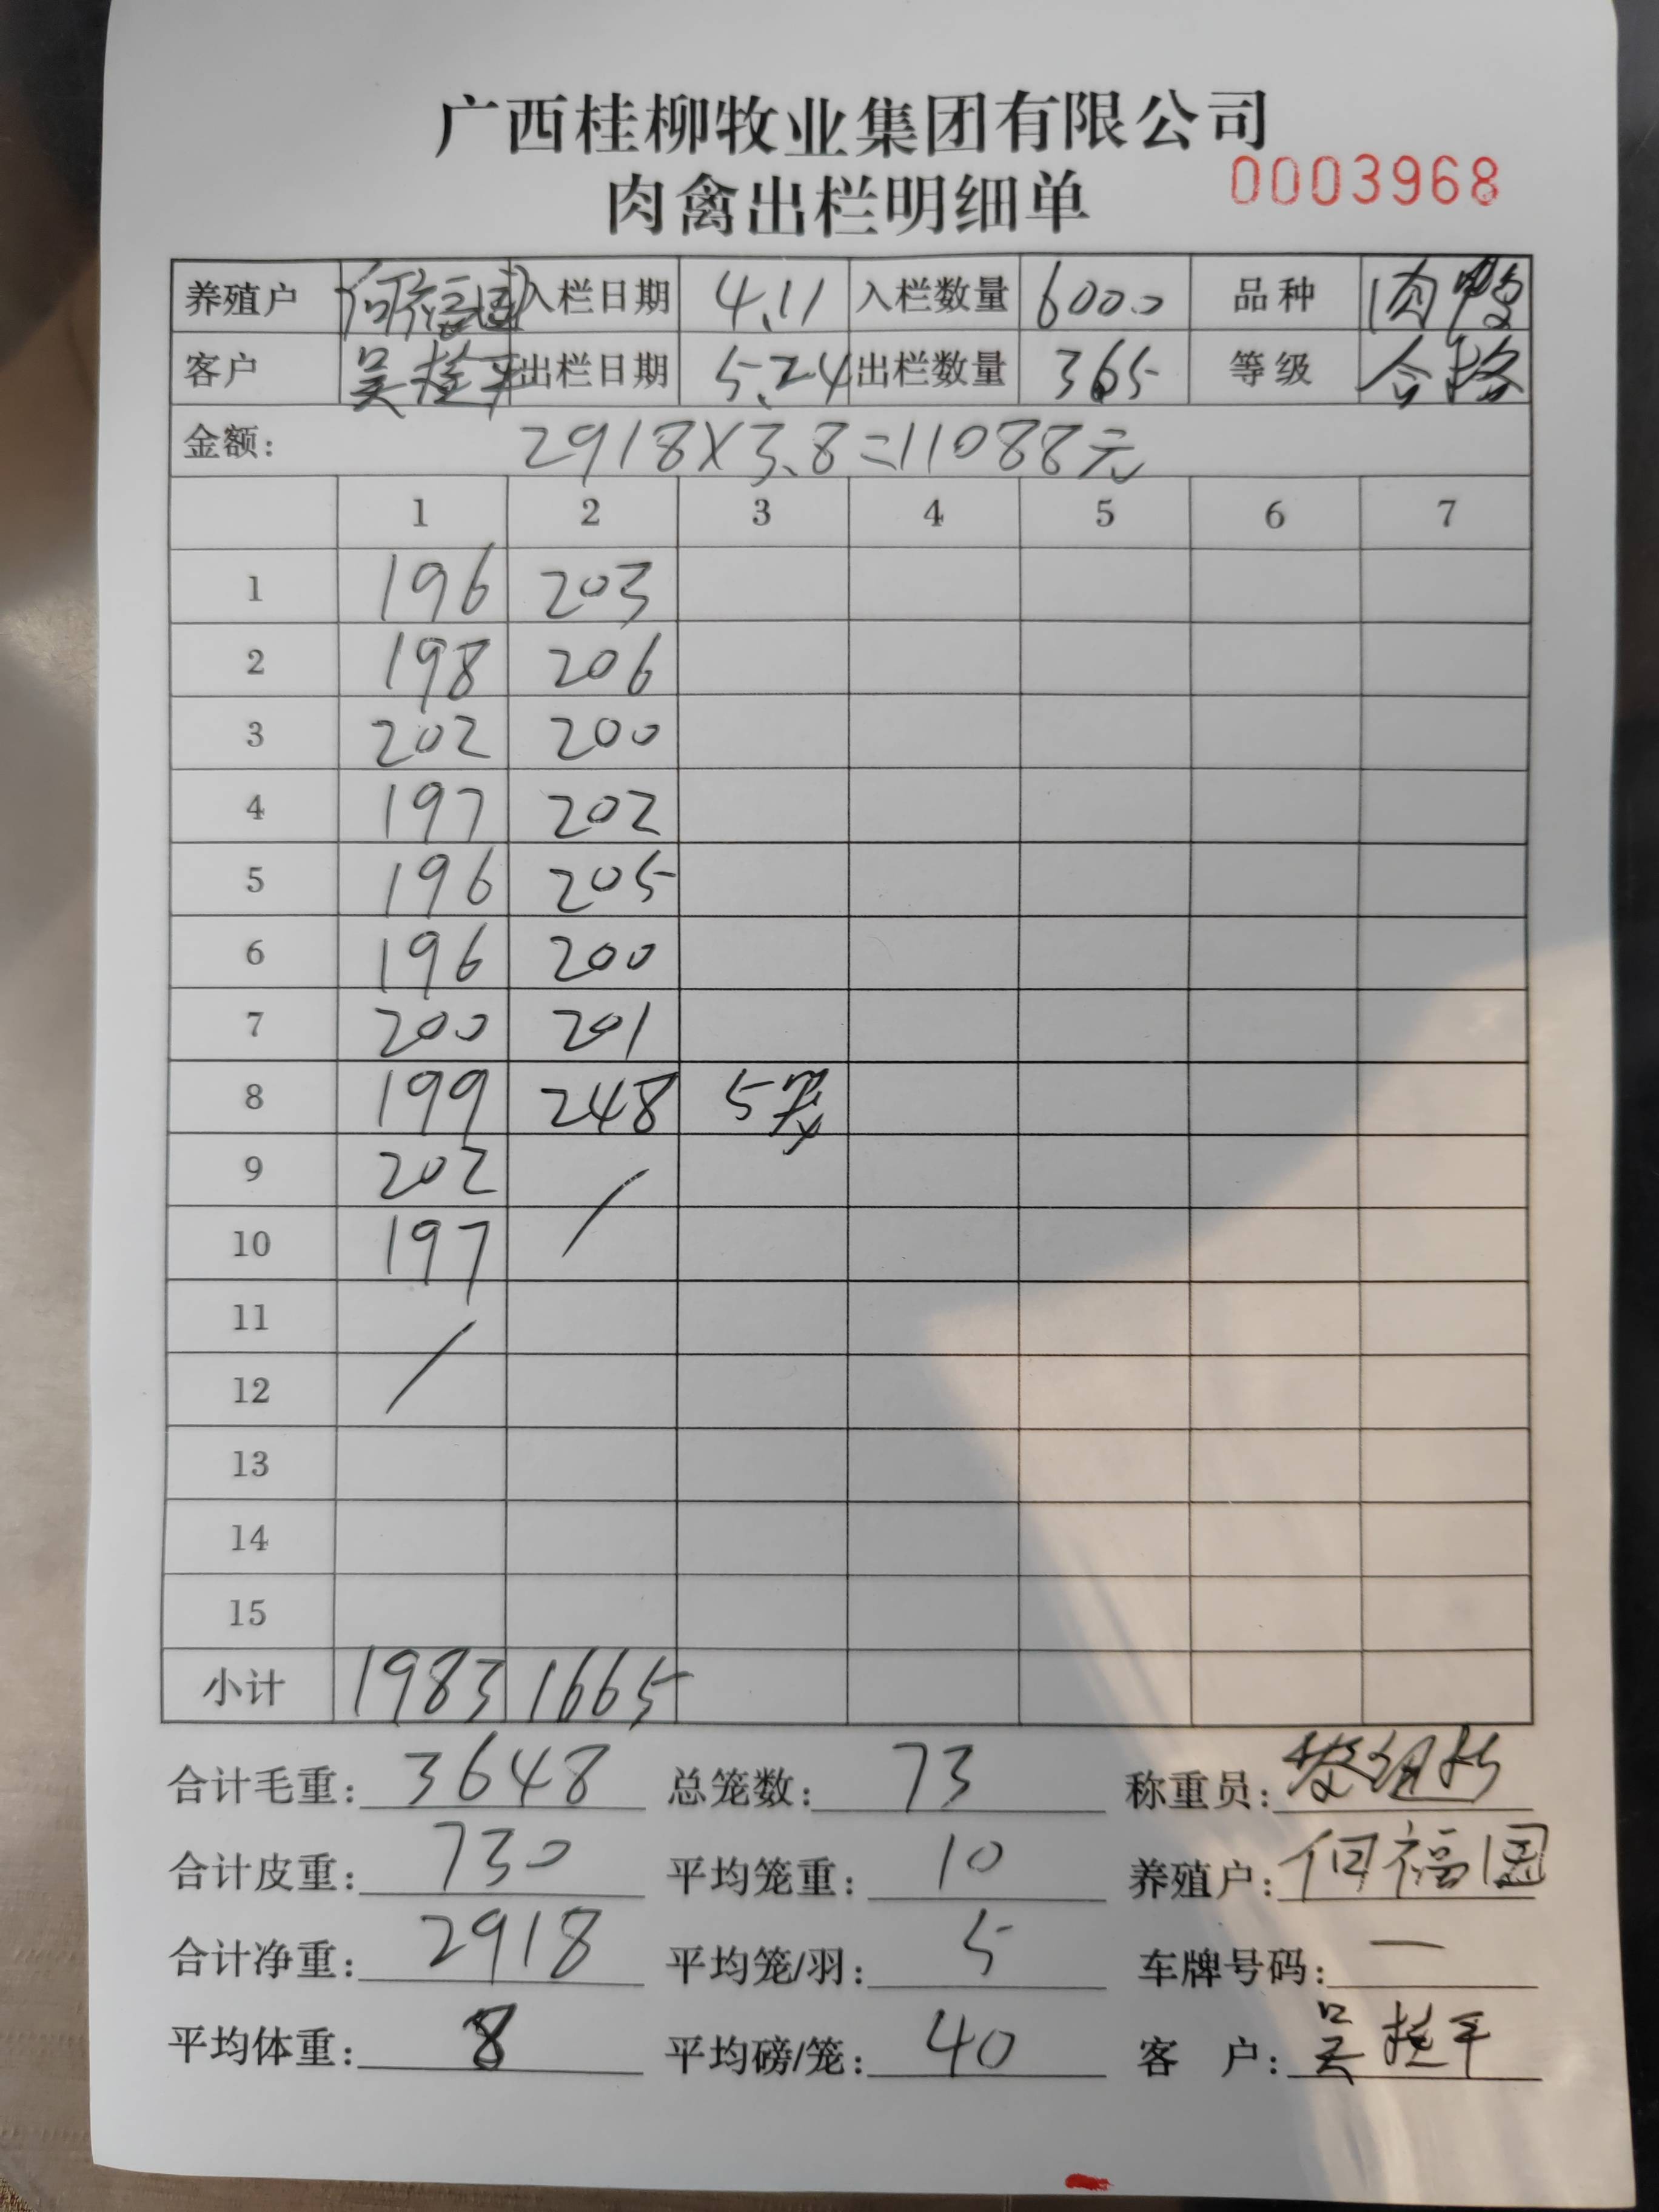 广西桂柳牧业集团有限公司
肉禽出栏明细单
0003968
养殖户 何福国 入栏日期 4.11 入栏数量 6000 品种 肉鸭
客户 吴 平 出栏日期 5.24 出栏数量 365 等级 合格
金额: 2918×3.8=11088元
1 2 3 4 5 6 7
1 196 203
2 198 206
3 202 200
4 197 202
5 196 205
6 196 200
7 200 201
8 199 248 5笼
9 202 /
10 197
11 /
12
13
14
15
小计 1983 1665
合计毛重: 3648 总笼数: 73 称重员:
合计皮重: 730 平均笼重: 10 养殖户: 何福国
合计净重: 2918 平均笼/羽: 5 车牌号码: —
平均体重: 8 平均磅/笼: 40 客 户: 吴 平